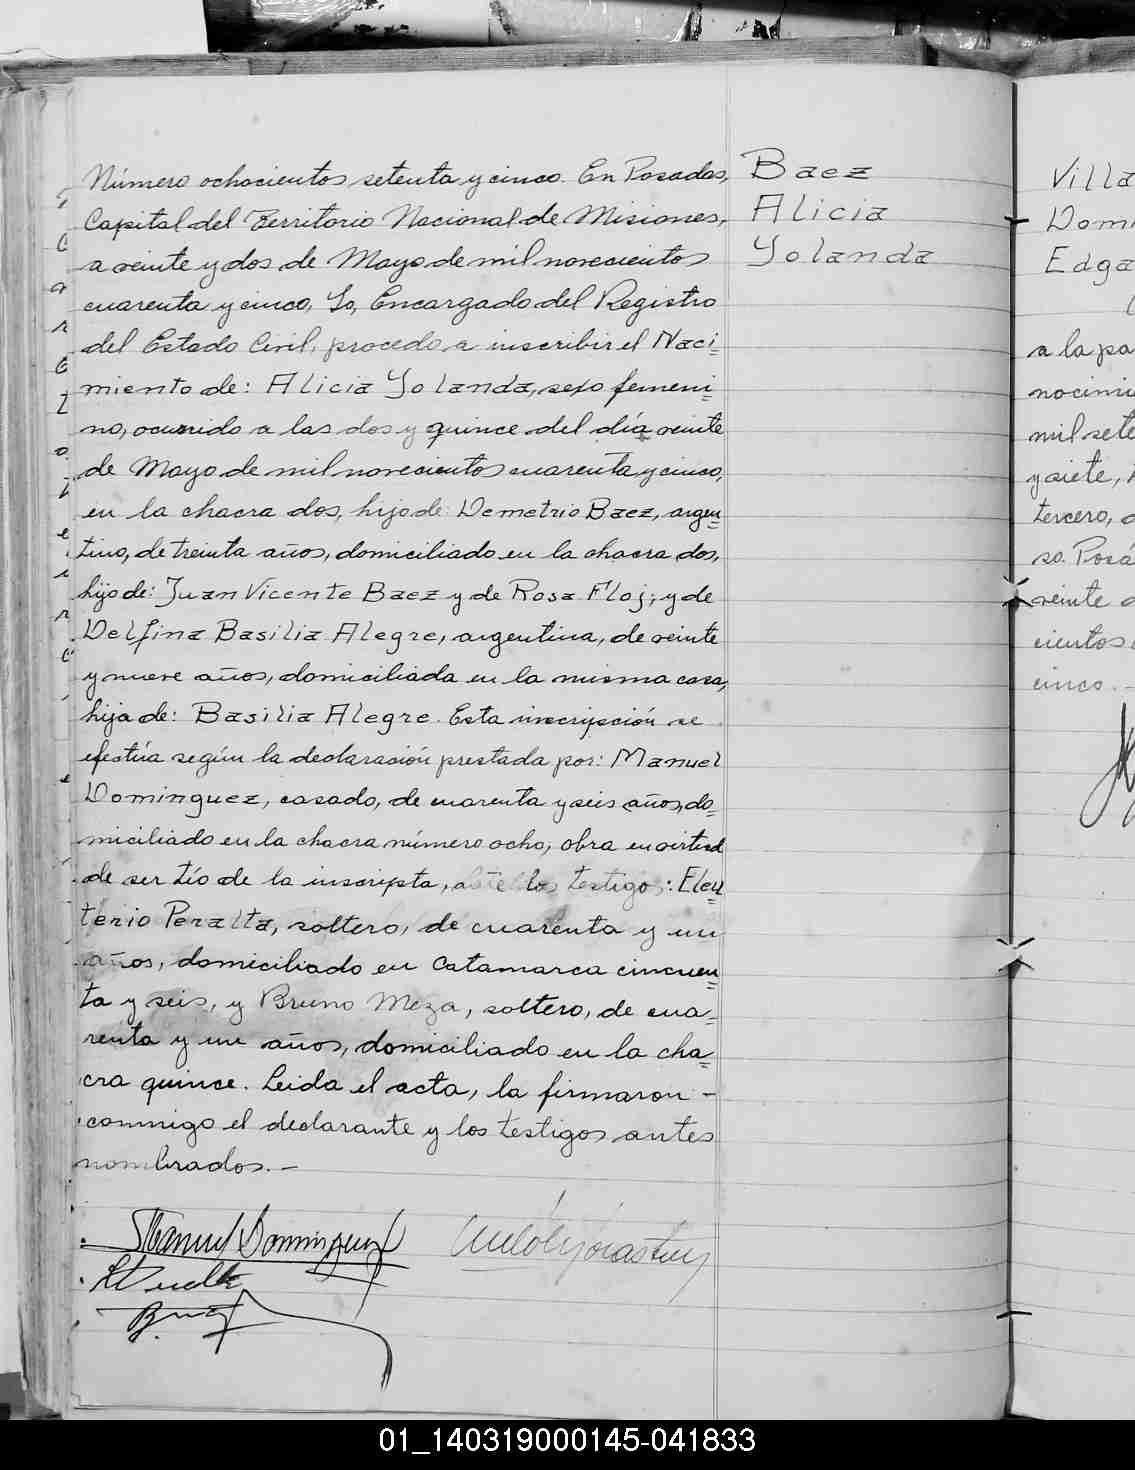 Número ochocientos setenta y cinco. En Posadas,
Capital del Territorio Nacional de Misiones,
a veinte y dos de Mayo de mil novecientos
cuarenta y cinco, Yo, Encargado del Registro
del Estado Civil, procedo a inscribir el Naci=
miento de: Alicia Yolanda, sexo femeni=
no, ocurrido a las dos y quince del día veinte
de Mayo de mil novecientos cuarenta y cinco,
en la chacra dos, hijo de: Demetrio Baez, argen=
tino, de treinta años, domiciliado en la chacra dos,
hijo de: Juan Vicente Baez y de Rosa Floj; y de
Delfina Basilia Alegre, argentina, de veinte
y nueve años, domiciliada en la misma casa,
hija de: Basilia Alegre. Esta inscripción se
efectúa según la declaración prestada por: Manuel
Dominguez, casado, de cuarenta y seis años, do=
miciliado en la chacra número ocho, obra en virtud
de ser tío de la inscripta, ante los testigos: Eleu=
terio Peralta, soltero, de cuarenta y un
años, domiciliado en Catamarca cincuen=
ta y seis, y Bruno Meza, soltero, de cua=
renta y un años, domiciliado en la cha=
cra quince. Leida el acta, la firmaron -
conmigo el declarante y los testigos antes
nombrados. -
Manuel Dominguez
Baez
Alicia
Yolanda
Villa
Domi
Edga
a la pa
nocimi
mil sete
y siete,
tercero,
so. Posa
veinte d
cientos
cinco. -
01_140319000145-041833